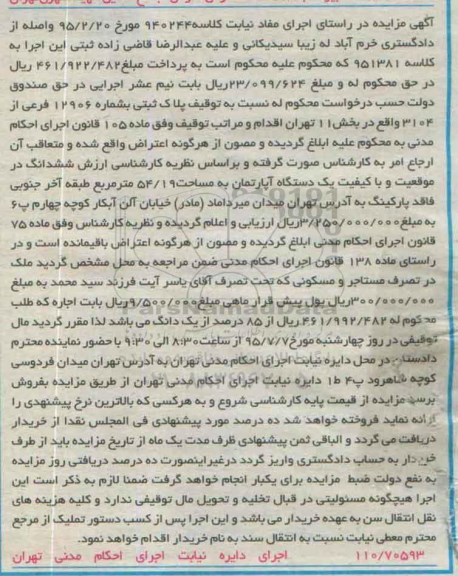 آگهی مزایده در راستای اجرای مفاد نیابت کلاسه۹۴۰۲۴۴ مورخ ۹۵/۲/۲۰ واصله از
دادگستری خرم آباد له زیبا سیدیکانی و علیه عبدالرضا قاضی زاده ثبتی این اجرا به
کلاسه ۹۵۱۳۸۱ که محکوم علیه محکوم است به پرداخت مبلغ۴۶۱/۹۲۲/۴۸۲ ریال
در حق محکوم له و مبلغ ۲۳/۰۹۹/۶۲۴ریال بابت نیم عشر اجرایی در حق صندوق
دولت حسب درخواست محکوم له نسبت به توقیف پلاک ثبتی بشماره ۱۲۹۰۶ فرعی از
۳۱۰۴ واقع در بخش۱۱ تهران اقدام و مراتب توقیف وفق ماده ۱۰۵ قانون اجرای احکام
مدنی به محکوم علیه ابلاغ گردیده و مصون از هرگونه اعتراض واقع شده و متعاقب آن
ارجاع امر به کارشناس صورت گرفته و براساس نظریه کارشناسی ارزش ششدانگ در
موقعیت و با کیفیت یک دستگاه آپارتمان به مساحت۵۴/۱۹ مترمربع طبقه آخر جنوبی
فاقد پارکینگ به آدرس تهران میدان میرداماد (مادر) خیابان آلن آبکار کوچه چهارم پ۶
به مبلغ۳/۲۵۰/۰۰۰/۰۰۰ریال ارزیابی و اعلام گردیده و نظریه کارشناس وفق ماده ۷۵
قانون اجرای احکام مدنی ابلاغ گردیده و مصون از هرگونه اعتراض باقیمانده است و در
راستای ماده ۱۳۸ قانون اجرای احکام مدنی ضمن مراجعه به محل مشخص گردید ملک
در تصرف مستاجر و مسکونی که تحت تصرف آقای یاسر آیت فرزند سید محمد به مبلغ
۳۰۰/۰۰۰/۰۰۰ریال پول پیش قرار ماهی مبلغ۹/۵۰۰/۰۰۰ریال بابت اجاره که طلب
محکوم له ۴۶۱/۹۹۲/۴۸۲ریال از ۸۵ درصد از یک دانگ می باشد لذا مقرر گردید مال
توقیفی در روز چهارشنبه مورخ۹۵/۷/۷ از ساعت۸:۳۰ الی ۹:۳۰ با حضور نماینده محترم
دادستان در محل دایره نیابت اجرای احکام مدنی تهران به آدرس تهران میدان فردوسی
کوچه شاهرود پ۴ ط۱ دایره نیابت اجرای احکام مدنی تهران از طریق مزایده بفروش
برسد مزایده از قیمت پایه کارشناسی شروع و به هرکسی که بالاترین نرخ پیشنهادی را
ارائه نماید فروخته خواهد شد ده درصد مورد پیشنهادی فی المجلس نقدا از خریدار
دریافت می گردد و الباقی ثمن پیشنهادی ظرف مدت یک ماه از تاریخ مزایده باید از طرف
خریدار به حساب دادگستری واریز گردد درغیراینصورت ده درصد دریافتی روز مزایده
به نفع دولت ضبط مزایده برای یکبار انجام خواهد گرفت ضمنا لازم به ذکر است این
اجرا هیچگونه مسئولیتی در قبال تخلیه و تحویل مال توقیفی ندارد و کلیه هزینه های
نقل انتقال سن به عهده خریدار می باشد و این اجرا پس از کسب دستور تملیک از مرجع
محترم معطی نیابت نسبت به انتقال سند به نام خریدار اقدام خواهد نمود.
۱۱۰/۷۰۵۹۳ اجرای دایره نیابت اجرای احکام مدنی تهران
ParsNamadData